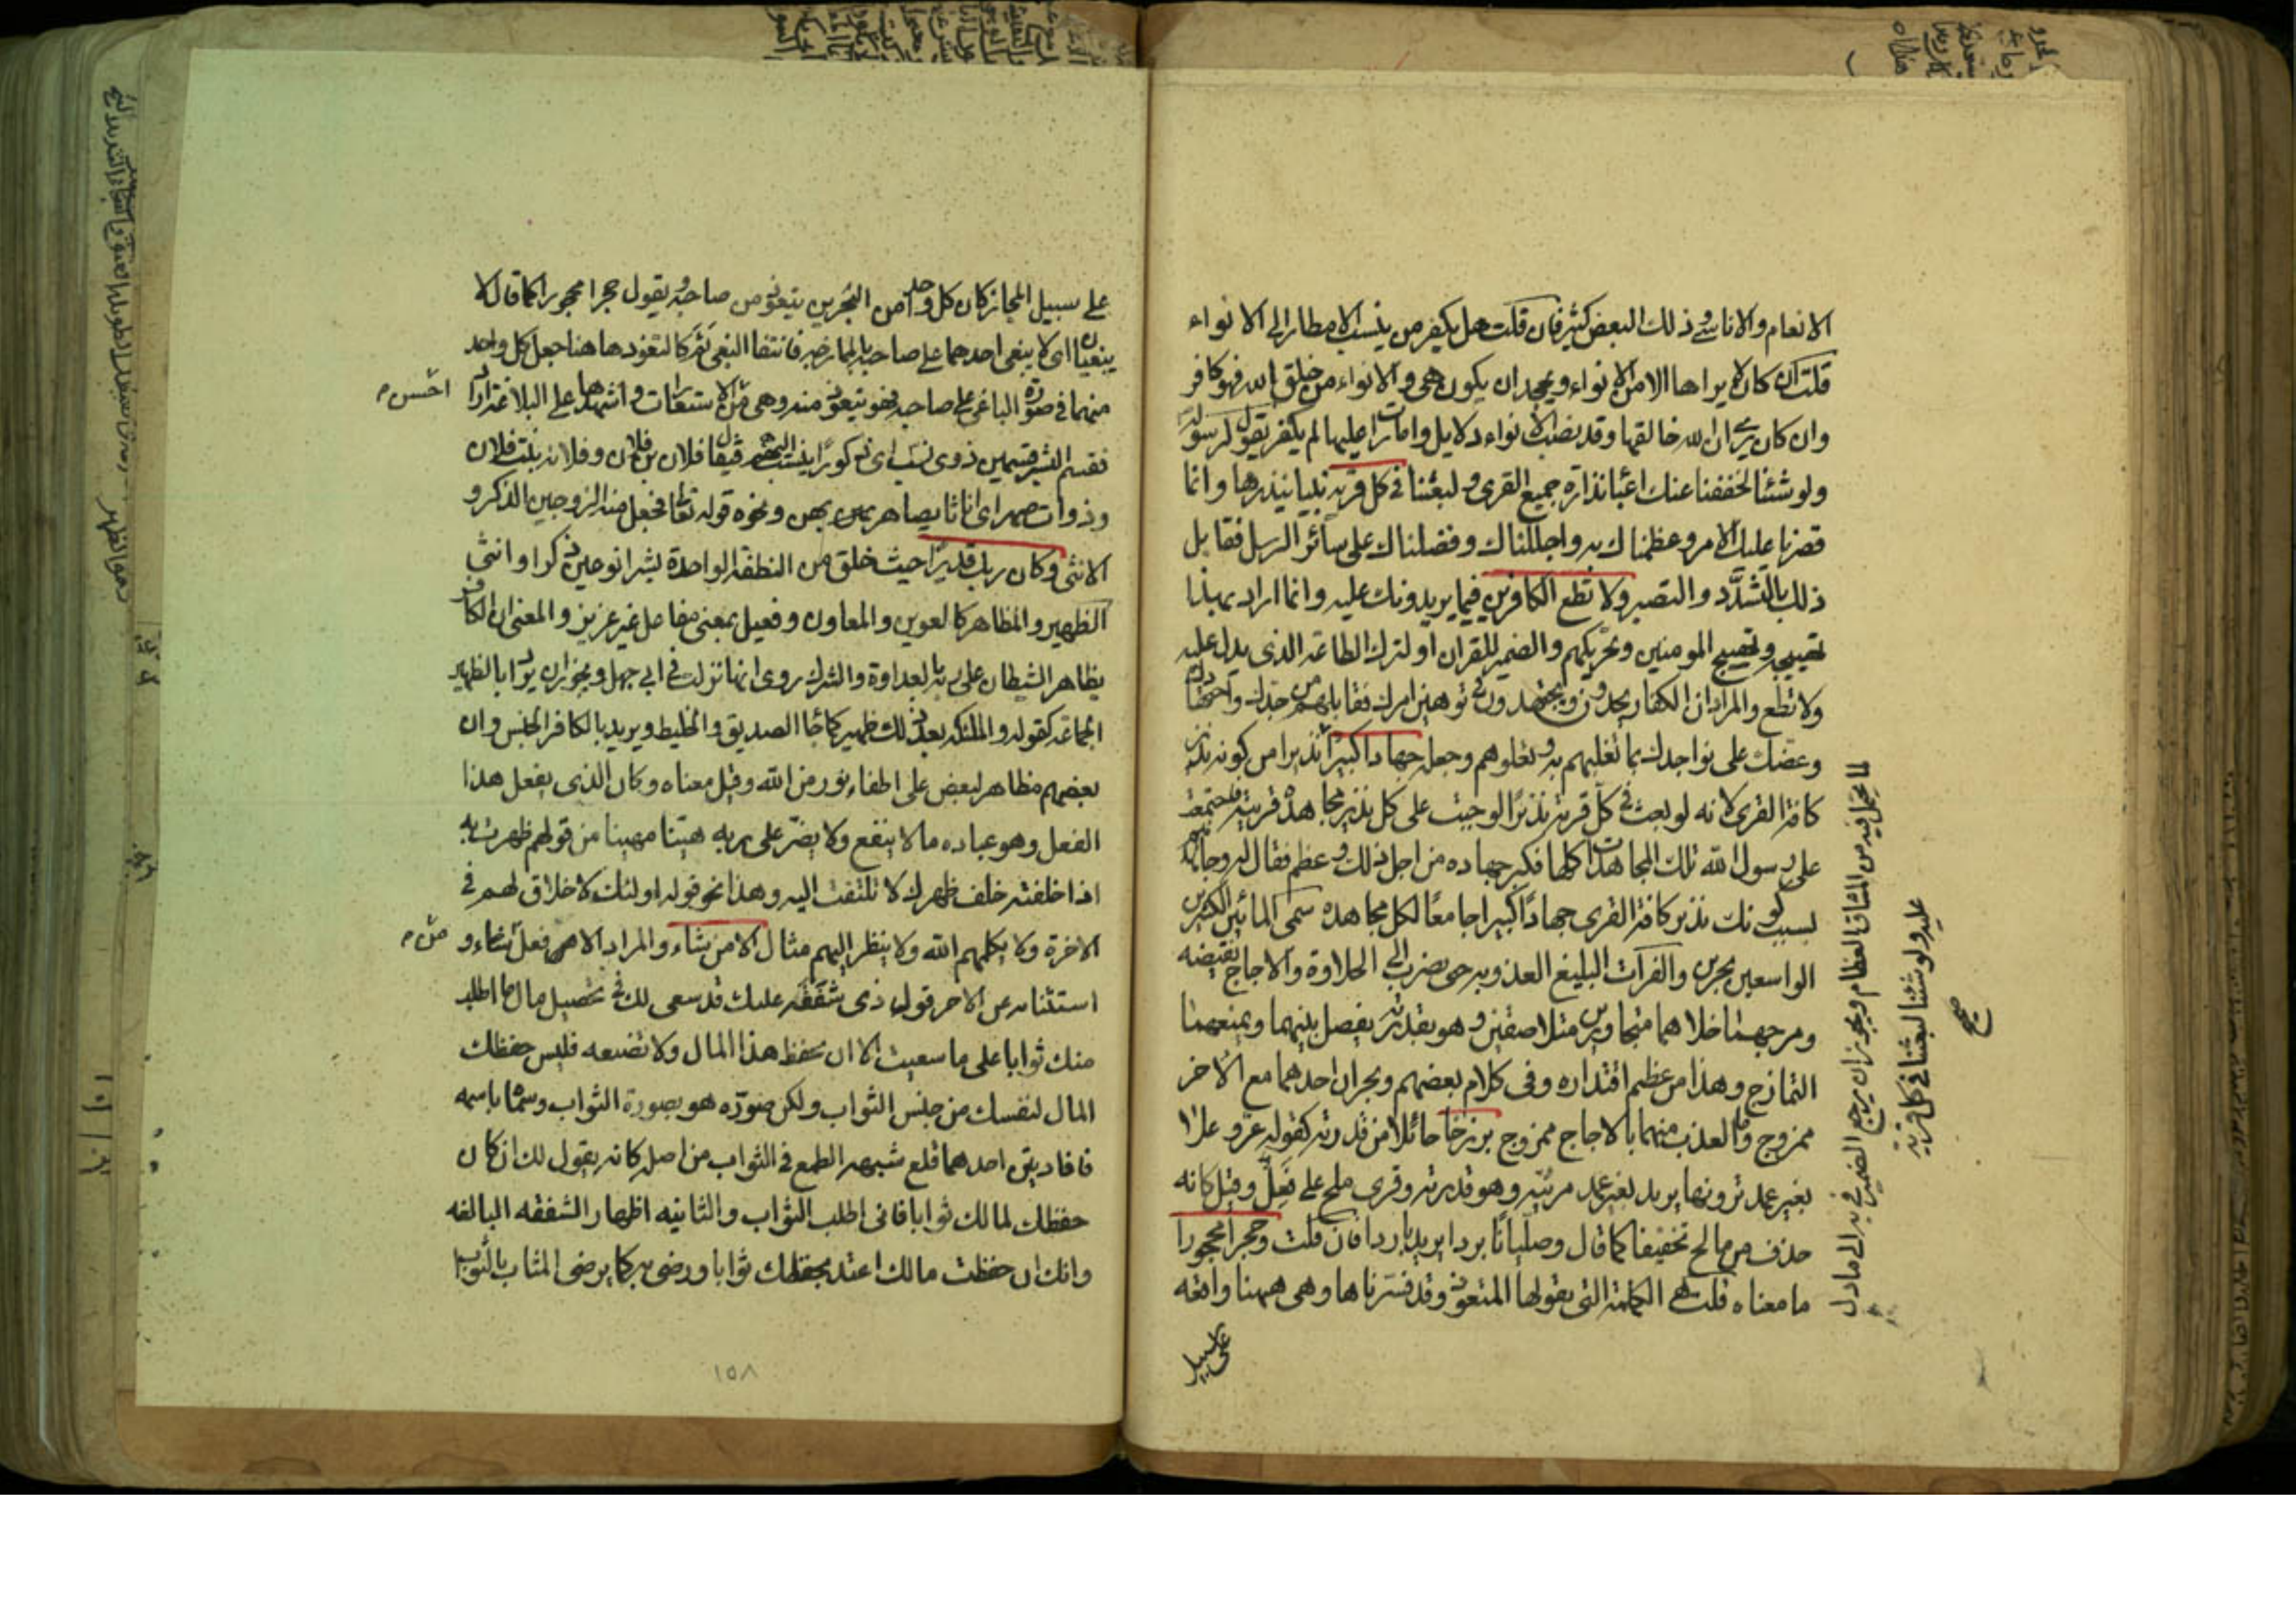 الانعام والاناسي وذلك البعض كثير فان قلت هل يكفر من ينسب الامطار الى الانواء
قلت ان كان لا يراها الا من الانواء ويجحد ان يكون هي والانواء من خلق الله فهو كافر
وان كان يرى ان الله خالقها وقد نصب الانواء دلايل وامارات عليها لم يكفر يقول لرسوله
ولو شئنا لخففنا عنك اعباء نذارة جميع القرى ولبعثنا في كل قرية نبيا ينذرها وانما
قصرنا عليك الامر وعظمناك به واجللناك وفضلناك على سائر الرسل فقابل
ذلك بالتشدد والتصبر ولا تطع الكافرين فيما يريدونك عليه وانما اراد بهذا
تهييجه وتهييج المومنين وتحريكهم والضمير للقران او لترك الطاعة الذى يدل عليه
ولا تطع والمراد ان الكفار يجدون ويجتهدون في توهين امرك فقابلهم من جدك واجتهادك
وعضك على نواجدك بما تغلبهم به وتعلوهم وجعله جهادا كبيرا نذيرا من كونه نذير
كافة القرى لانه لو بعث في كل قرية نذيرا لوجبت على كل نذير مجاهدة قريته فاجتمعت
على رسول الله تلك المجاهدات كلها فكبر جهاده من اجل ذلك وعظم فقال له وجاهدهم
بسبب كونك نذير كافة القرى جهادا كبيرا جامعا لكل مجاهده سمى المائين الكثيرين
الواسعين بحرين والفرات البليغ العذوبه حتى يضرب الى الحلاوة والاجاج نقيضه
ومرجهما خلاهما متجاورين متلاصقين وهو بقدرته يفصل بينهما ويمنعهما
التمازج وهذا من عظيم اقتداره وفى كلام بعضهم وبحران احدهما مع الاخر
ممزوج وماء العذب منهما بالاجاج ممزوج برزخا حائلا من قدرته كقوله عز وعلا
بغير عمد ترونها يريد بغير عمد مرئيه وهو قدرته وقرى ملح على فعل وقيل كانه
حذف من مالح تخفيفا كما قال وصليانا بردا يريد باردا فان قلت وحجرا محجورا
ما معناه قلت هي الكلمة التى يقولها المتعوذ وقد فسرناها وهى ههنا واقعه
على سبيل
لما يحمل فيه من المشاق العظام ويجوز ان يرجع الضمير في به الى ما دل
عليه ولو شئنا لبعثنا في كل قرية
صح
على سبيل المجاز كان كل واحد من البحرين يتعوذ من صاحبه ويقول حجرا محجورا كما قال لا
يبغيان اى لا يبغى احدهما على صاحبه بالممازجة فانتفا البغى ثم كالتعوذ هاهنا جعل كل واحد
منهما في صورة الباغى على صاحبه فهو يتعوذ منه وهى من الاستعارات واشهدها على البلاغة اراد
احسن
فقسم البشر قسمين ذوى نسب اى ذكورا ينسب اليهم فيقال فلان بن فلان وفلانه بنت فلان
وذوات صهر اى اناثا يصاهر بهن ونحوه قوله تعالى فجعل منه الزوجين الذكر و
الانثى وكان ربك قديرا حيث خلق من النطفة الواحدة بشرا نوعين ذكرا وانثى
الظهير والمظاهر كالعوين والمعاون وفعيل بمعنى مفاعل غير عزيز والمعنى ان الكافر
يظاهر الشيطان على ربه بالعداوة والشرك روى انها نزلت في ابى جهل ويجوز ان يريد بالظهير
الجماعة كقوله والملئكه بعد ذلك ظهير كما جاء الصديق والخليط ويريد بالكافر الجنس وان
بعضهم مظاهر لبعض على اطفاء نور من الله وقيل معناه وكان الذى يفعل هذا
الفعل وهو عباده ما لا ينفع ولا يضر على ربه هينا مهينا من قولهم ظهرت به
اذا خلفته خلف ظهرك لا تلتفت اليه وهذا نحو قوله اولئك لا خلاق لهم في
الاخرة ولا يكلمهم الله ولا ينظر اليهم مثال الا من شاء والمراد الا فعل من شاء و
من
استثنائه عن الاجر قول ذى شفقة عليك قد سعى لك في تحصيل مال ما اطلب
منك ثوابا على ما سعيت الا ان تحفظ هذا المال ولا تضيعه فليس حفظك
المال لنفسك من جنس الثواب ولكن صوره هو بصورة الثواب وسماه باسمه
فافاد يتن احدهما قلع شبهه الطمع في الثواب من اصله كانه يقول لك ان كان
حفظك لمالك ثوابا فانى اطلب الثواب والثانيه اظهار الشفقه البالغه
وانك ان حفظت مالك اعتد بحفظك ثوابا ورضى به كما يرضى المثاب بالثواب
١٥٨